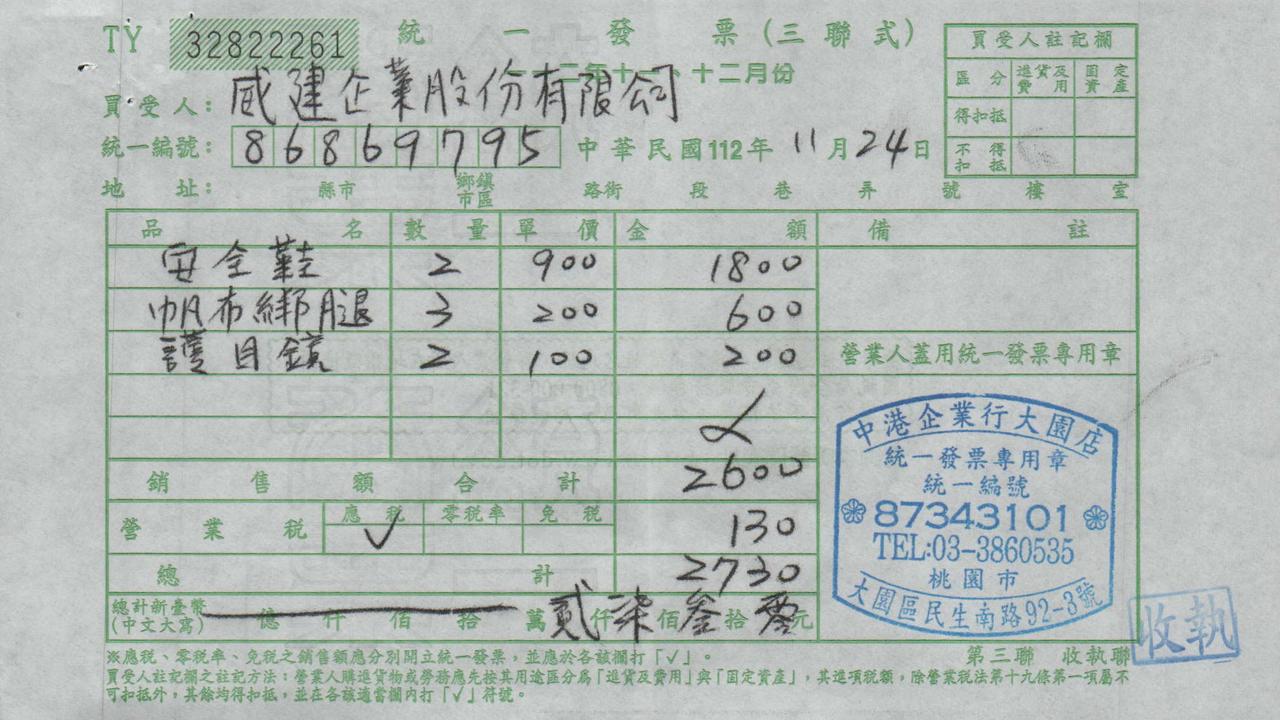 TY 32822261 統一發票(三聯式)
一一二年十一、十二月份
買受人: 威建企業股份有限公司
統一編號: 86869795 中華民國112年 11月24日
地址: 縣市 鄉鎮市區 路街 段 巷 弄 號 樓 室
買受人註記欄
區分 進貨及費用 固定資產
得扣抵
不得扣抵
品名 數量 單價 金額 備註
安全鞋 2 900 1800
帆布綁腿 3 200 600
護目鏡 2 100 200
營業人蓋用統一發票專用章
銷售額合計 2600
營業稅 應稅 零稅率 免稅
✓ 130
總計 2730
總計新臺幣(中文大寫) 億仟佰拾萬貳仟柒佰參拾零元
中港企業行大園店
統一發票專用章
統一編號
87343101
TEL:03-3860535
桃園市
大園區民生南路92-3號
※應稅、零稅率、免稅之銷售額應分別開立統一發票,並應於各該欄打「✓」。
第三聯 收執聯
收執
買受人註記欄之註記方法:營業人購進貨物或勞務應先按其用途區分為「進貨及費用」與「固定資產」,其進項稅額,除營業稅法第十九條第一項屬不
可扣抵外,其餘均得扣抵,並在各該適當欄內打「✓」符號。